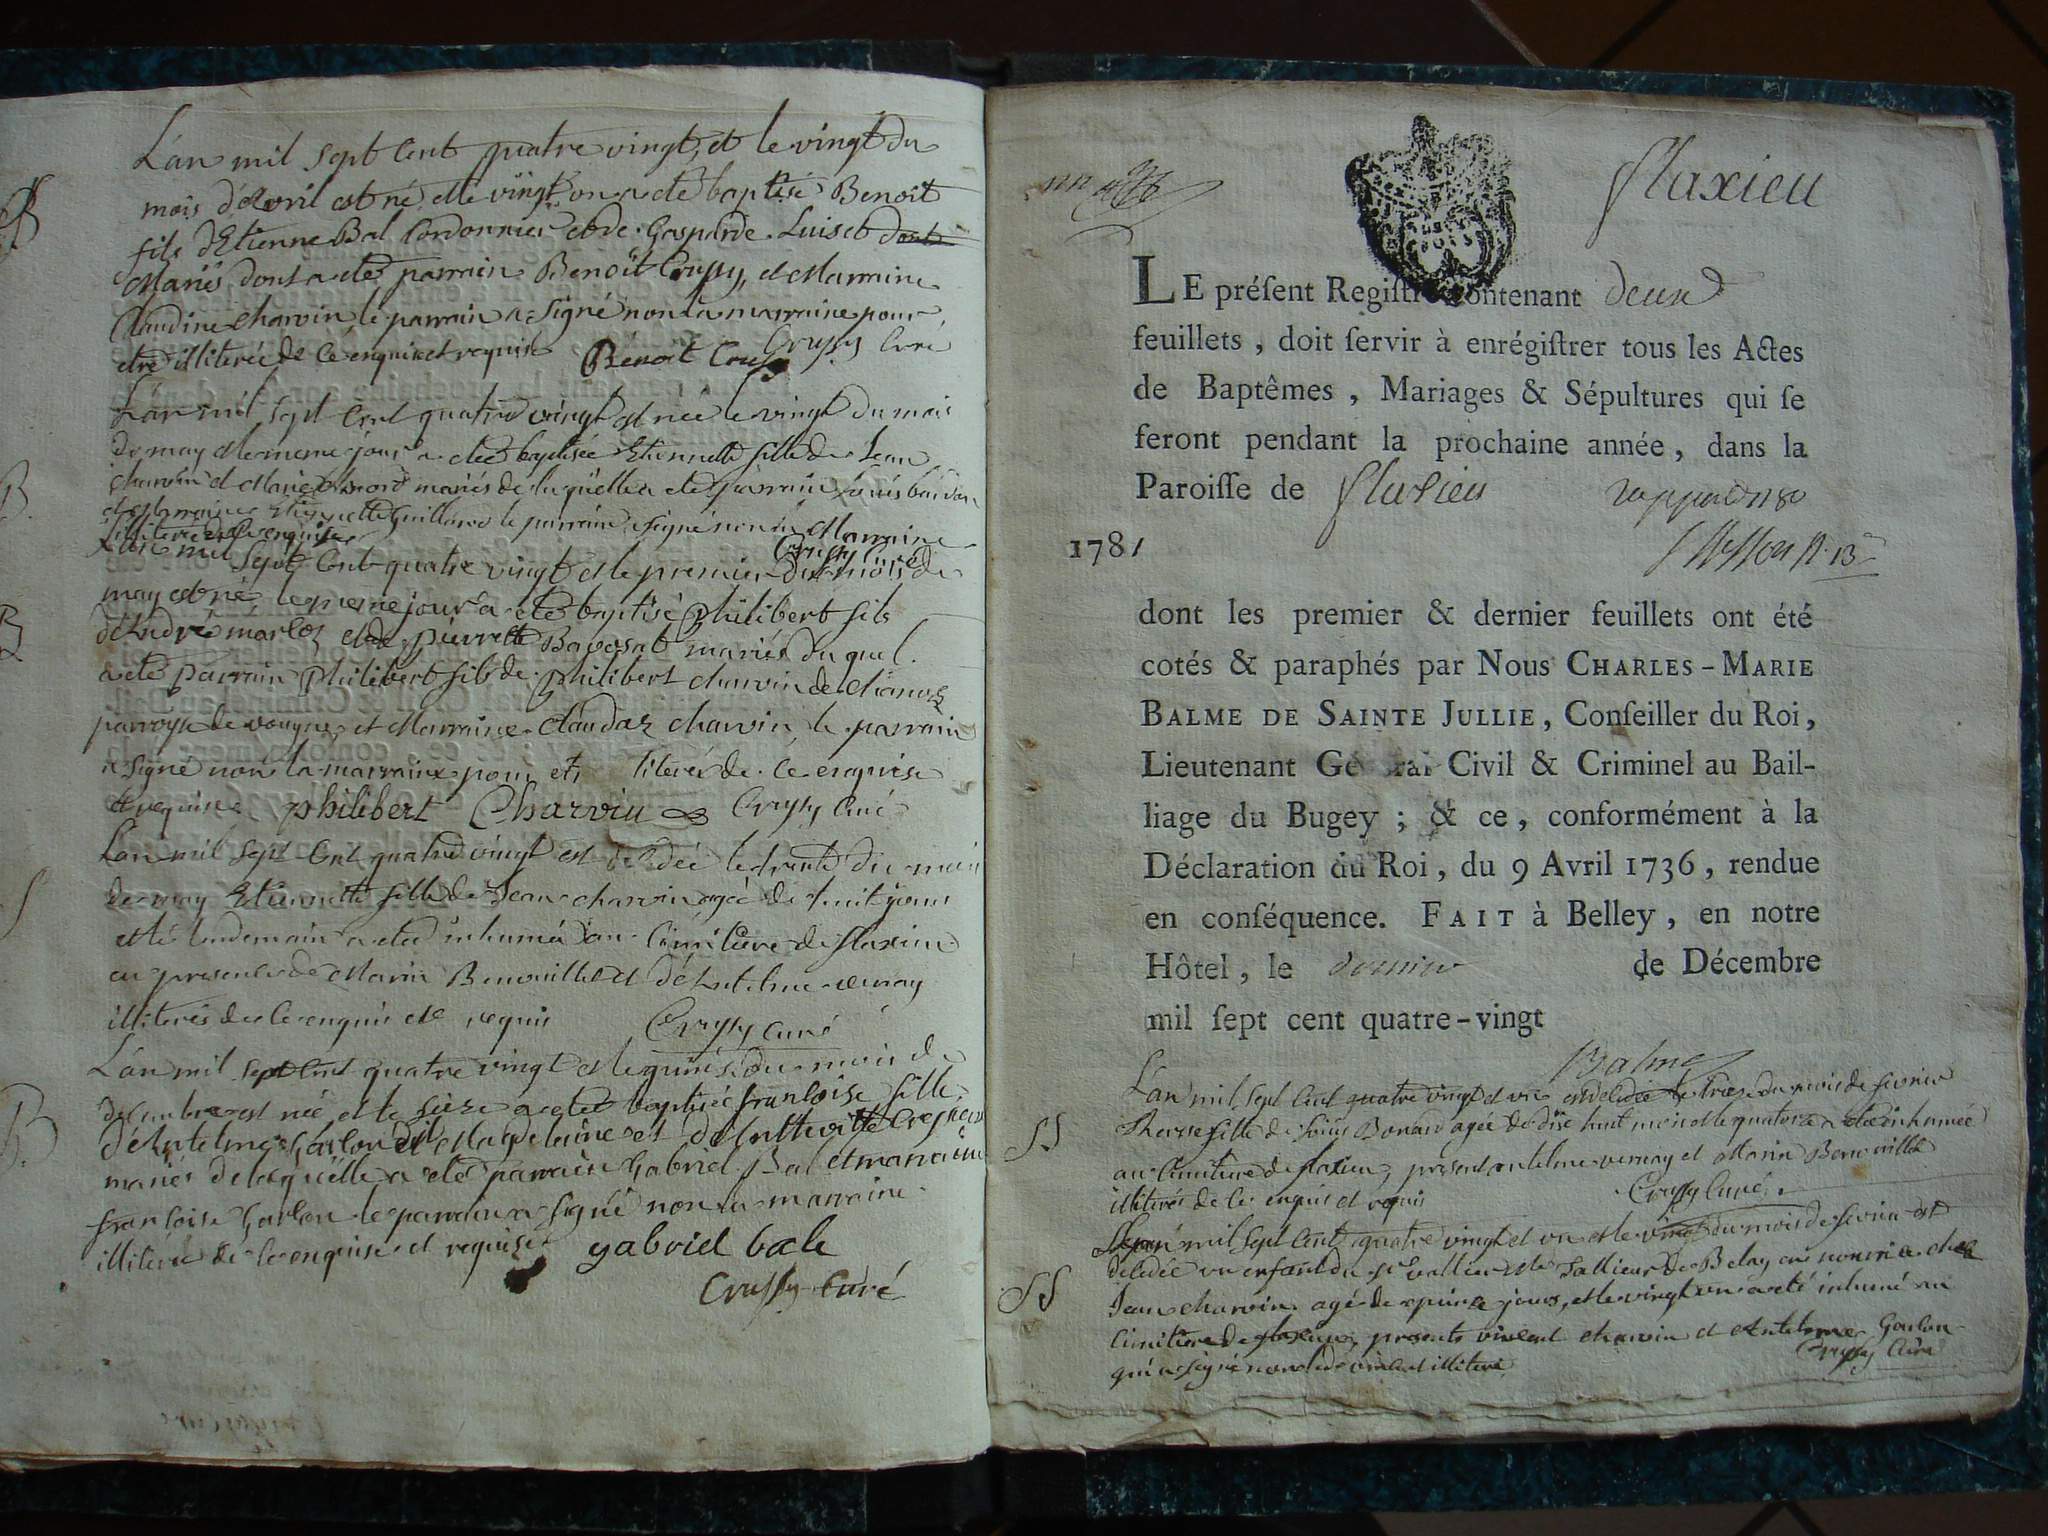 L'an mil sept cent quatre vingt, et le vingt du
mois d'avril est né et le vingt un a eté baptisé Benoit
fils d'Etienne Bal Cordonnier et de Gasparde Luiset dont
Mariés dont a eté parrain Benoît Crussy, et Marraine
Claudine charvin, le parrain a signé non la marraine pour
etre illiterée de ce enquise et requise Benoit Crussy Crussy Curé
L'an mil sept cent quatre vingt est née le vingt du mois
de may et le meme jour a eté baptisée Etiennette fille de Jean
charvin et Marie mariés de laquelle a eté parrain Louis
et Marraine Etiennette Guillard le parrain a signé non la Marraine
illiterée de ce enquise Crussy Curé
L'an mil sept cent quatre vingt et le premier du mois de
may est né, le meme jour a eté baptisé Philibert fils
d'André marlos et de pierrette mariés du quel
a eté parrain Philibert fils de Philibert charvin de
parroysse de vongnes et Marraine Claudaz charvin, le parrain
a signé non la marraine pour de ce enquise
et requise philibert Charvin Crussy Curé
L'an mil sept cent quatre vingt est decedée le trente du mois
de may Etiennette fille de Jean charvin agée de huit jours
et le lendemain a eté inhumée au cimitiere de flaxieu
en presence de Marin Benouillet et d'Antelme vernay
illiterés de ce enquis et requis Crussy curé
L'an mil sept cent quatre vingt et le quinse du mois de
decembre est née et le seize a eté baptisée francoise fille
d'Antelme Goslon et
mariés de laquelle a eté parrain Gabriel Bal et marraine
francoise Goslon le parrain a signé non la marraine
illiterée de ce enquise et requise gabriel bale
Crussy Curé
flaxieu
LE préſent Regiſtre contenant deux
feuillets, doit ſervir à enrégiſtrer tous les Actes
de Baptêmes, Mariages & Sépultures qui ſe
feront pendant la prochaine année, dans la
Paroiſſe de flaxieu
1781
dont les premier & dernier feuillets ont été
cotés & paraphés par Nous CHARLES-MARIE
BALME DE SAINTE JULLIE, Conſeiller du Roi,
Lieutenant Général Civil & Criminel au Bail-
liage du Bugey ; & ce, conformément à la
Déclaration du Roi, du 9 Avril 1736, rendue
en conſéquence. FAIT à Belley, en notre
Hôtel, le dernier de Décembre
mil ſept cent quatre-vingt
Balme
L'an mil sept cent quatre vingt et un est decedée le treze du mois de fevrier
fille de Louis Bonard agée de dix huit mois et le quatorze a eté inhumée
au cimitiere de flaxieu, présent antelme vernay et Marin Benouillet
illiterés de ce enquis et requis Crussy Curé
L'an mil sept cent quatre vingt et un et le vingt du mois de fevrier est
decedée un enfant du Sr vallier de Beley en nourrice chez
Jean charvin agé de quinze jours, et le vingt un a eté inhumé au
cimitiere de flaxieu, presents vincent charvin et Antelme Goslon
qui a signé non ledit vincent illiteré Crussy Curé